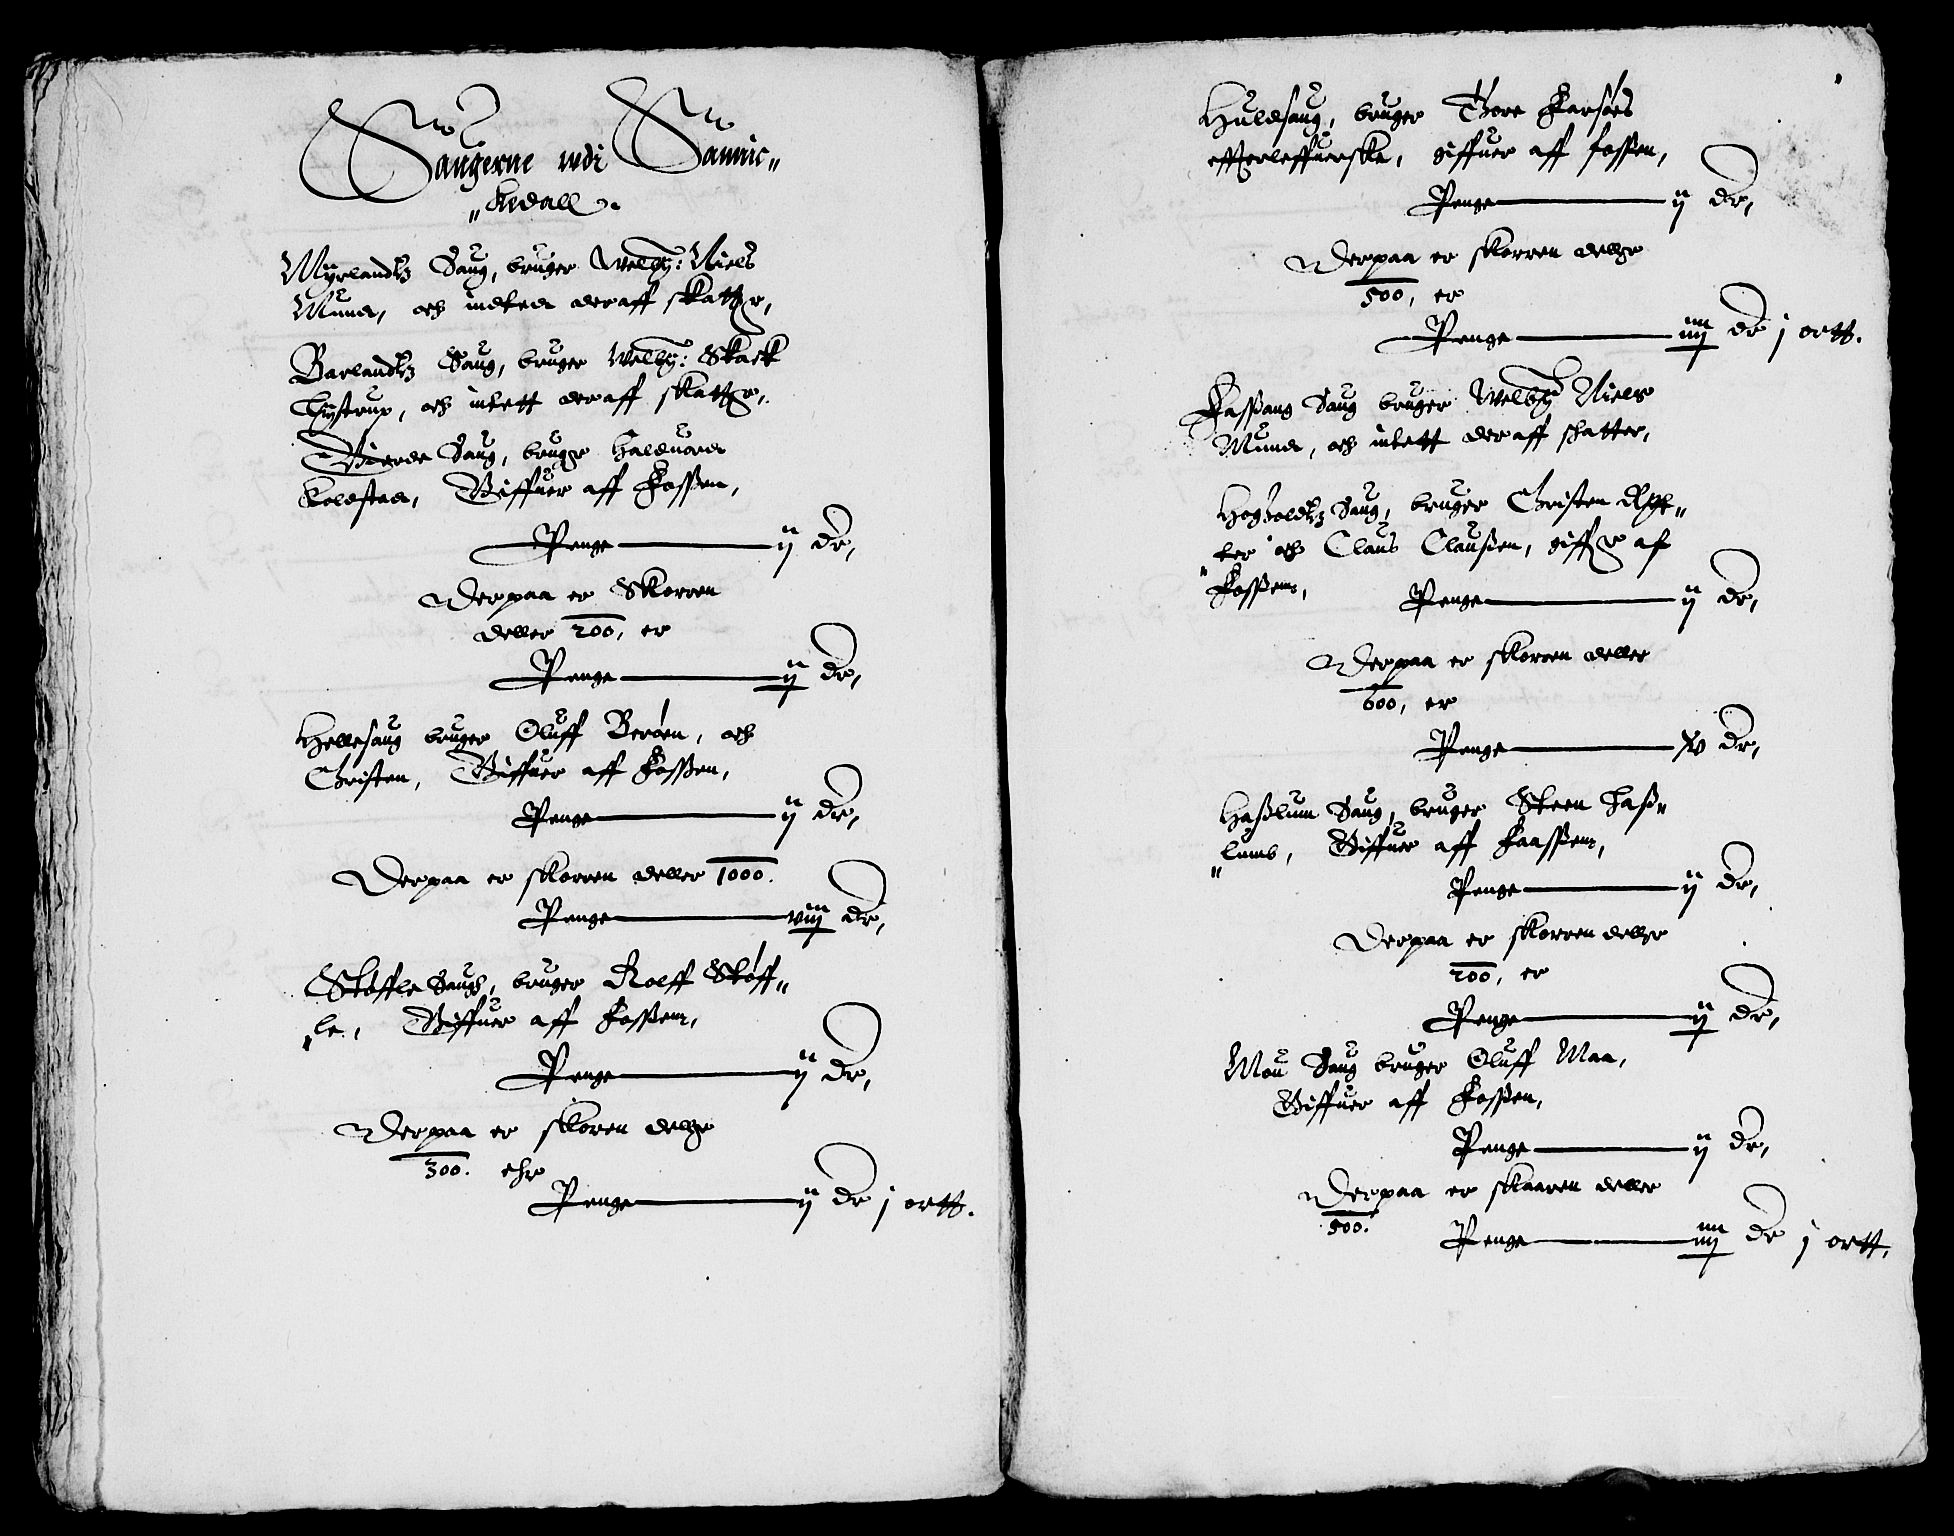 Saugerne udi Sannic„
„kedall.
Myrlandtz Saug, bruger Welby: Niels
Mund, och indted deraff skatter,
Barlandtz Saug, bruger Welby: Skack
Thystrup, och intett deraff skatter,
Saug, bruger Halduord
Kolstad, Giffuer aff Fossen,
Penge ij dr,
Derpaa er Skorren
deller 200, er
Penge ij dr,
Hellesaug bruger Oluff Beröen, och
Christen, Giffuer aff Fossen,
Penge ij dr,
Derpaa er skorren deller 1000.
Penge viij dr,
Stöffle Saugh, bruger Rolff Stöff„
„le, Giffuer aff Fossenn,
Penge ij dr,
Derpaa er skoren deller
300. ehr
Penge ij dr j ortt.
Huldsaug, bruger Thore Farsöes
effterleffuerske, giffuer aff fossen,
Penge ij dr,
Derpaa er skorren deller
500, er
Penge iiij dr j ortt.
Fassang Saug bruger Welby Niels
Mund, och intett deraff schatter,
Hogholdtz Saug, bruger Christen
och Claus Claussen, giffer af
„Fossenn, Penge ij dr,
Derpaa er skorren deller
600, er
Penge v dr,
Hasslum Saug, bruger Steen Hass„
„lumb, Giffuer aff Faassenn,
Penge ij dr,
Derpaa er skorren deller
200, er
Penge ij dr,
Mou Saug bruger Oluff Maa,
Giffuer aff Fossen,
Penge ij dr,
Derpaa er skaaren deller
500.
Penge iiij dr j ortt,